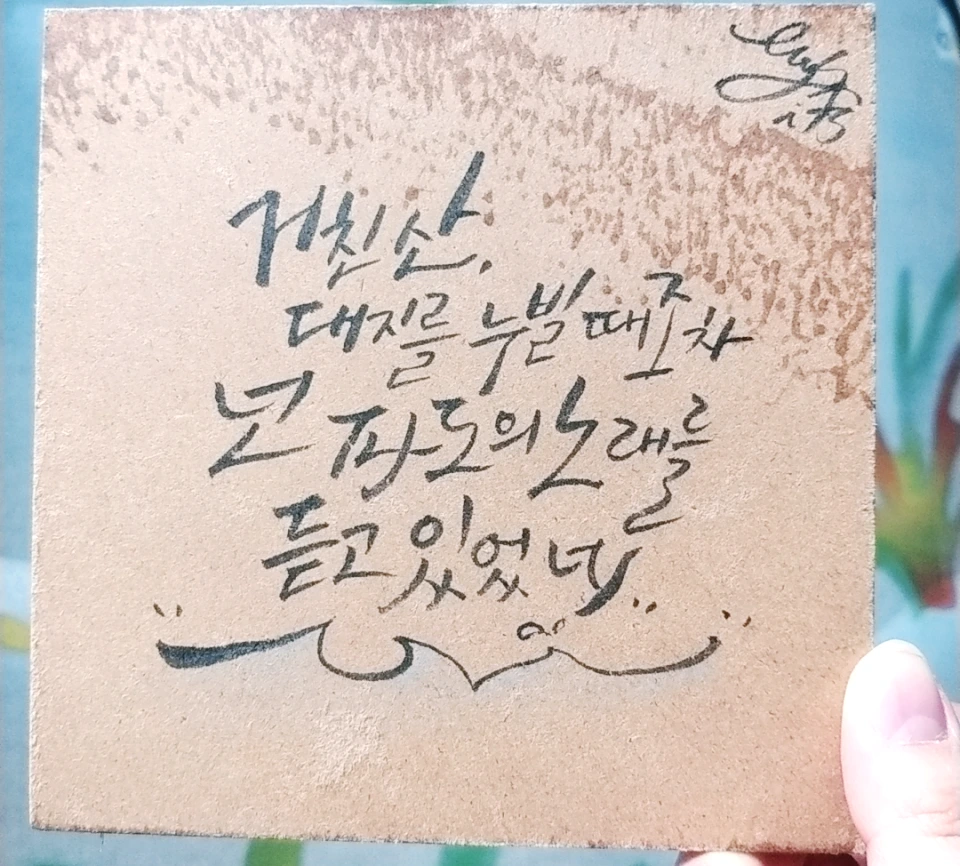 거친 산,
대지를 누빌 때조차
넌 파도의 노래를
듣고 있었네..